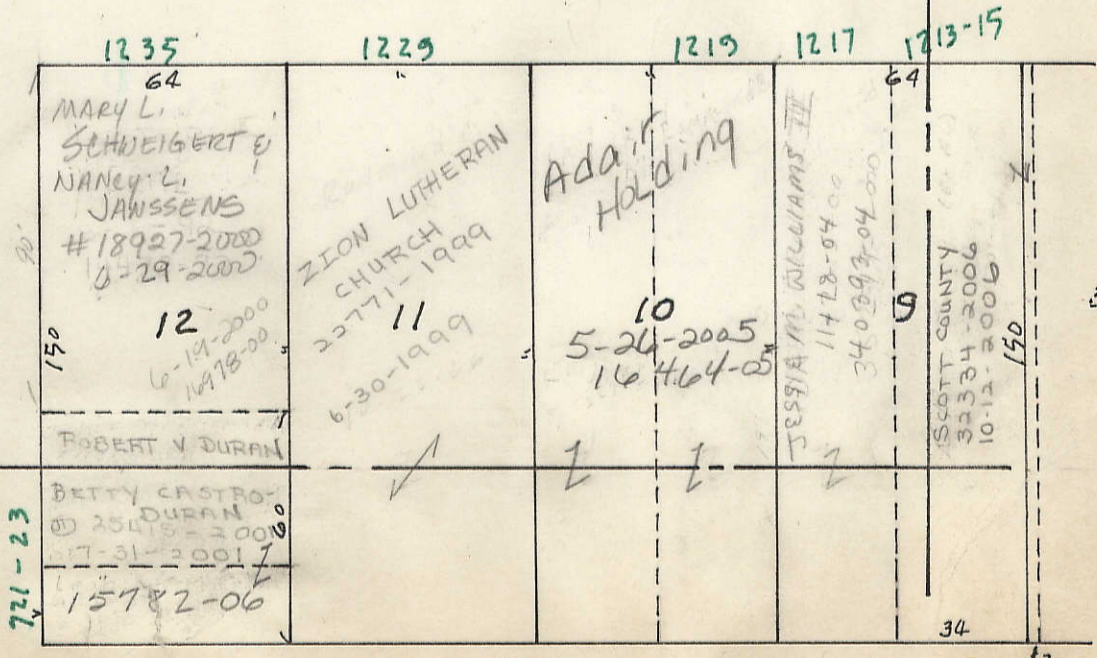 1235
1229
1219
1217
1213-15
64
MARY L.
SCHWEIGERT &
NANCY L.
JANSSENS
# 18927-2000
6-29-2000
12
6-19-2000
16978-00
150
90'
ROBERT V DURAN
BETTY CASTRO-
DURAN
2001
7-31-2001
60
15782-06
721-23
ZION LUTHERAN
CHURCH
22771-1999
11
6-30-1999
Adair
HOLDING
10
5-26-2005
16464-05
WILLIAMS III
64
9
SCOTT COUNTY
32334-2006
10-12-2006
150
34